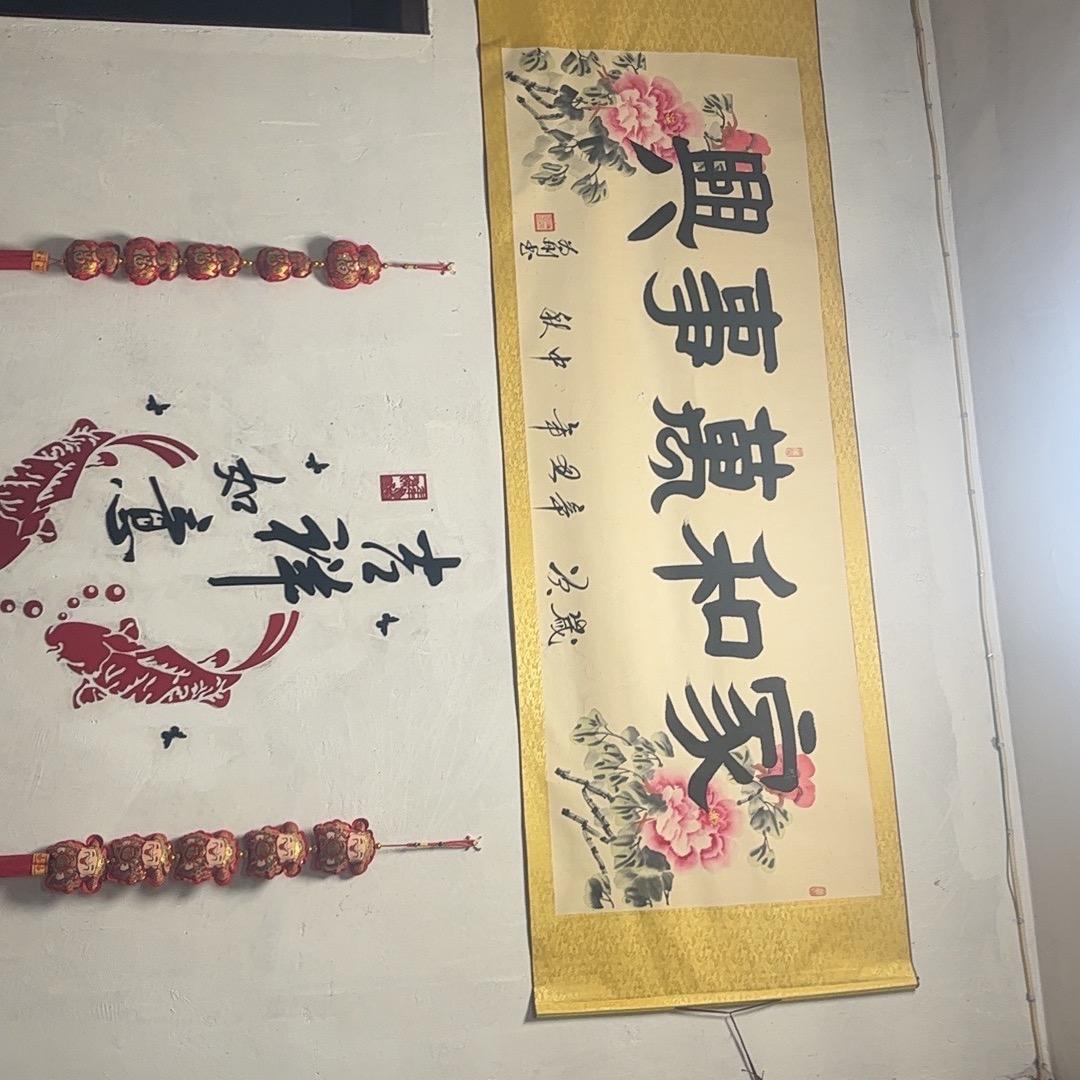 家和萬事興
歲次辛丑年中秋
吉祥如意